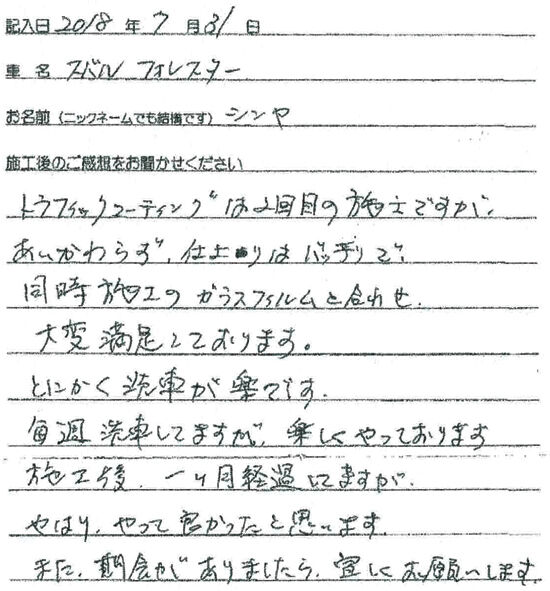 記入日 2018 年 7 月 31 日
車名 スバル フォレスター
お名前(ニックネームでも結構です) シンヤ
施工後のご感想をお聞かせください
トラフィックコーティングは2回目の施工ですが、
あいかわらず、仕上りはバッチリで、
同時施工のガラスフィルムと合わせ、
大変満足しております。
とにかく洗車が楽です。
毎週洗車してますが、楽しくやっております
施工後、一ヶ月経過してますが、
やはり、やって良かったと思います。
また、機会がありましたら、宜しくお願いします。